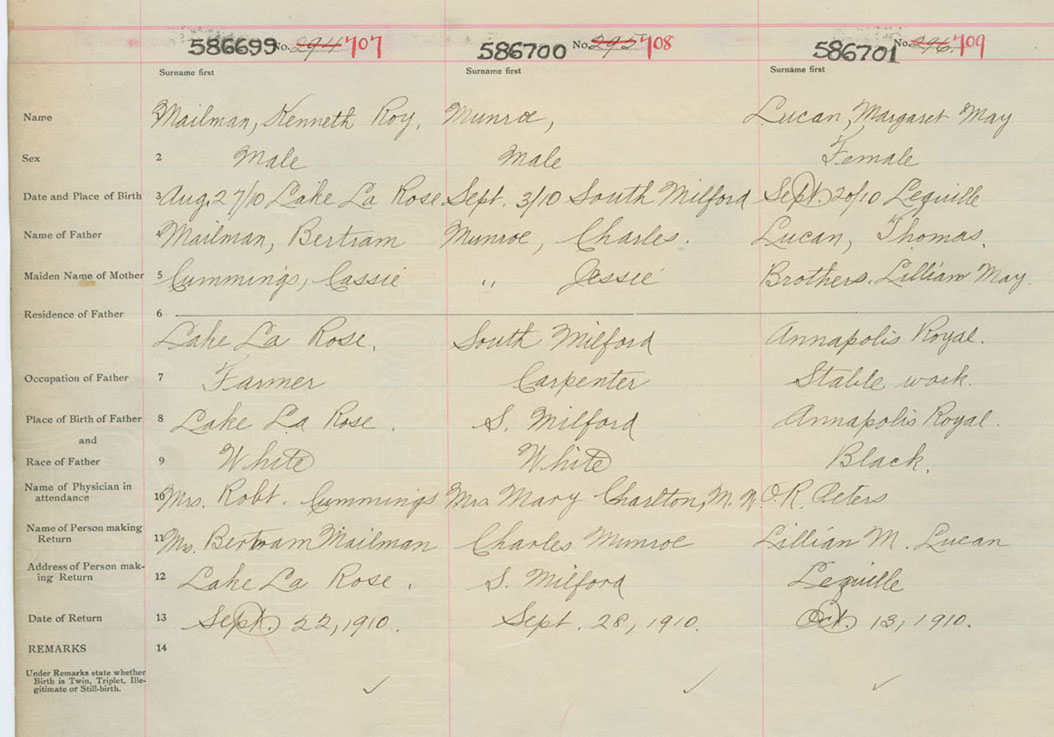 586699 No. 294 707 586700 No. 295 708 586701 No. 296 709
Surname first Surname first Surname first
Name Mailman, Kenneth Roy. Munroe, Lucan, Margaret May
Sex 2 Male Male Female
Date and Place of Birth 3 Aug. 27/10 Lake La Rose Sept. 3/10 South Milford Sept. 20/10 Lequille
Name of Father 4 Mailman, Bertram Munroe, Charles. Lucan, Thomas.
Maiden Name of Mother 5 Cummings, Cassie " Jessie Brothers. Lillian May.
Residence of Father 6
Lake La Rose. South Milford Annapolis Royal.
Occupation of Father 7 Farmer Carpenter Stable work.
Place of Birth of Father 8 Lake La Rose. S. Milford Annapolis Royal.
and
Race of Father 9 White White Black.
Name of Physician in
attendance 10 Mrs. Robt. Cummings Mrs Mary Charlton, M. W. O. R. Peters
Name of Person making
Return 11 Mrs. Bertram Mailman Charles Munroe Lillian M. Lucan
Address of Person mak-
ing Return 12 Lake La Rose. S. Milford Lequille
Date of Return 13 Sept. 22, 1910. Sept. 28, 1910. Oct. 13, 1910.
REMARKS 14
Under Remarks state whether
Birth is Twin, Triplet, Ille-
gitimate or Still-birth.